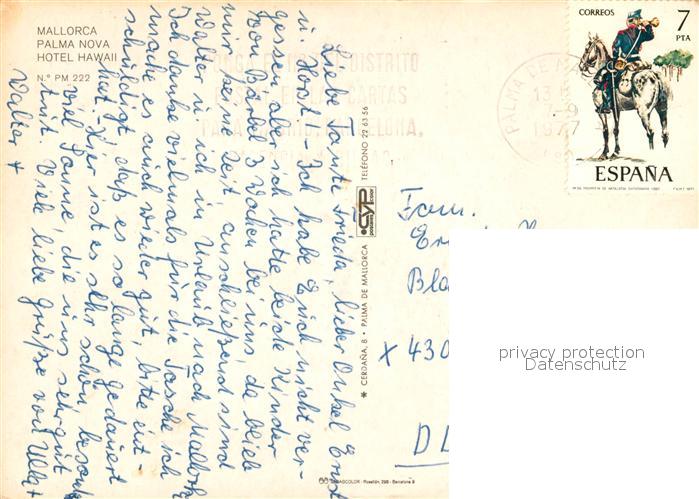 MALLORCA
PALMA NOVA
HOTEL HAWAII
N.º PM 222
Liebe Tante Frieda, lieber Onkel Ernst
u. Horst - Ich habe Euch nicht ver-
gessen aber ich hatte beide Kinder
von Bärbel 3 Wochen bei uns da bleibt
mir kein Zeit anschließend sind
Walter u. ich in Urlaub nach Mallorka
Ich danke vielmals für die Tasche ich
mache es auch wieder gut, bitte ent-
schuldigt, daß es so lange gedauert
hat. Hier ist es sehr schön besond.
viel Sonne, die uns sehr gut
tut. Viele liebe Grüße von Ulla +
Walter +
CERDAÑA, 8 • PALMA DE MALLORCA
CYP
TELÉFONO 22 63 56
CORREOS
7
PTA
ESPAÑA
F.N.M.T. 1977
PALMA DE M
13
1977
DISTRITO
CARTAS
BARCELONA,
Fam.
Bla
x 430
D
privacy protection
Datenschutz